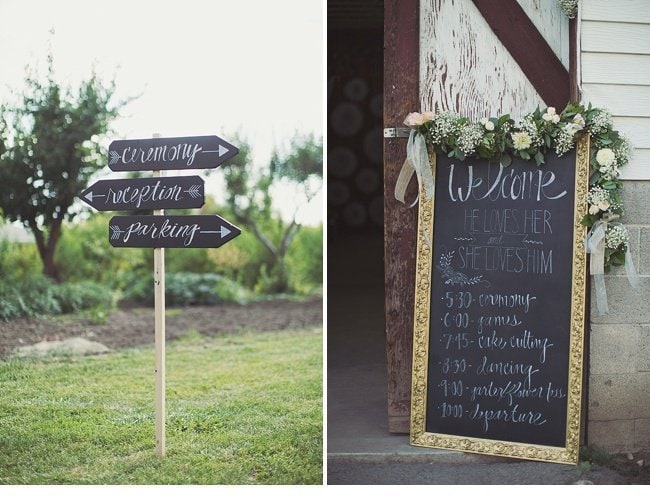 ceremony
reception
parking
Welcome
HE LOVES HER
and
SHE LOVES HIM
5:30 - ceremony
6:00 - games
7:15 - cake cutting
8:30 - dancing
9:00 - garter/flower toss
10:00 - departure